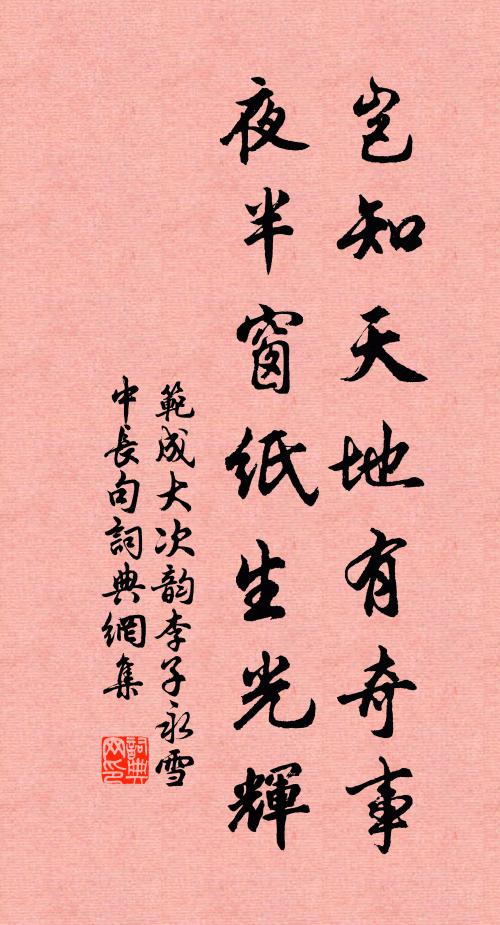 豈知天地有奇事
夜半窗紙生光輝
範成大次韵李子永雪
中長句詞典網集
詞典网印